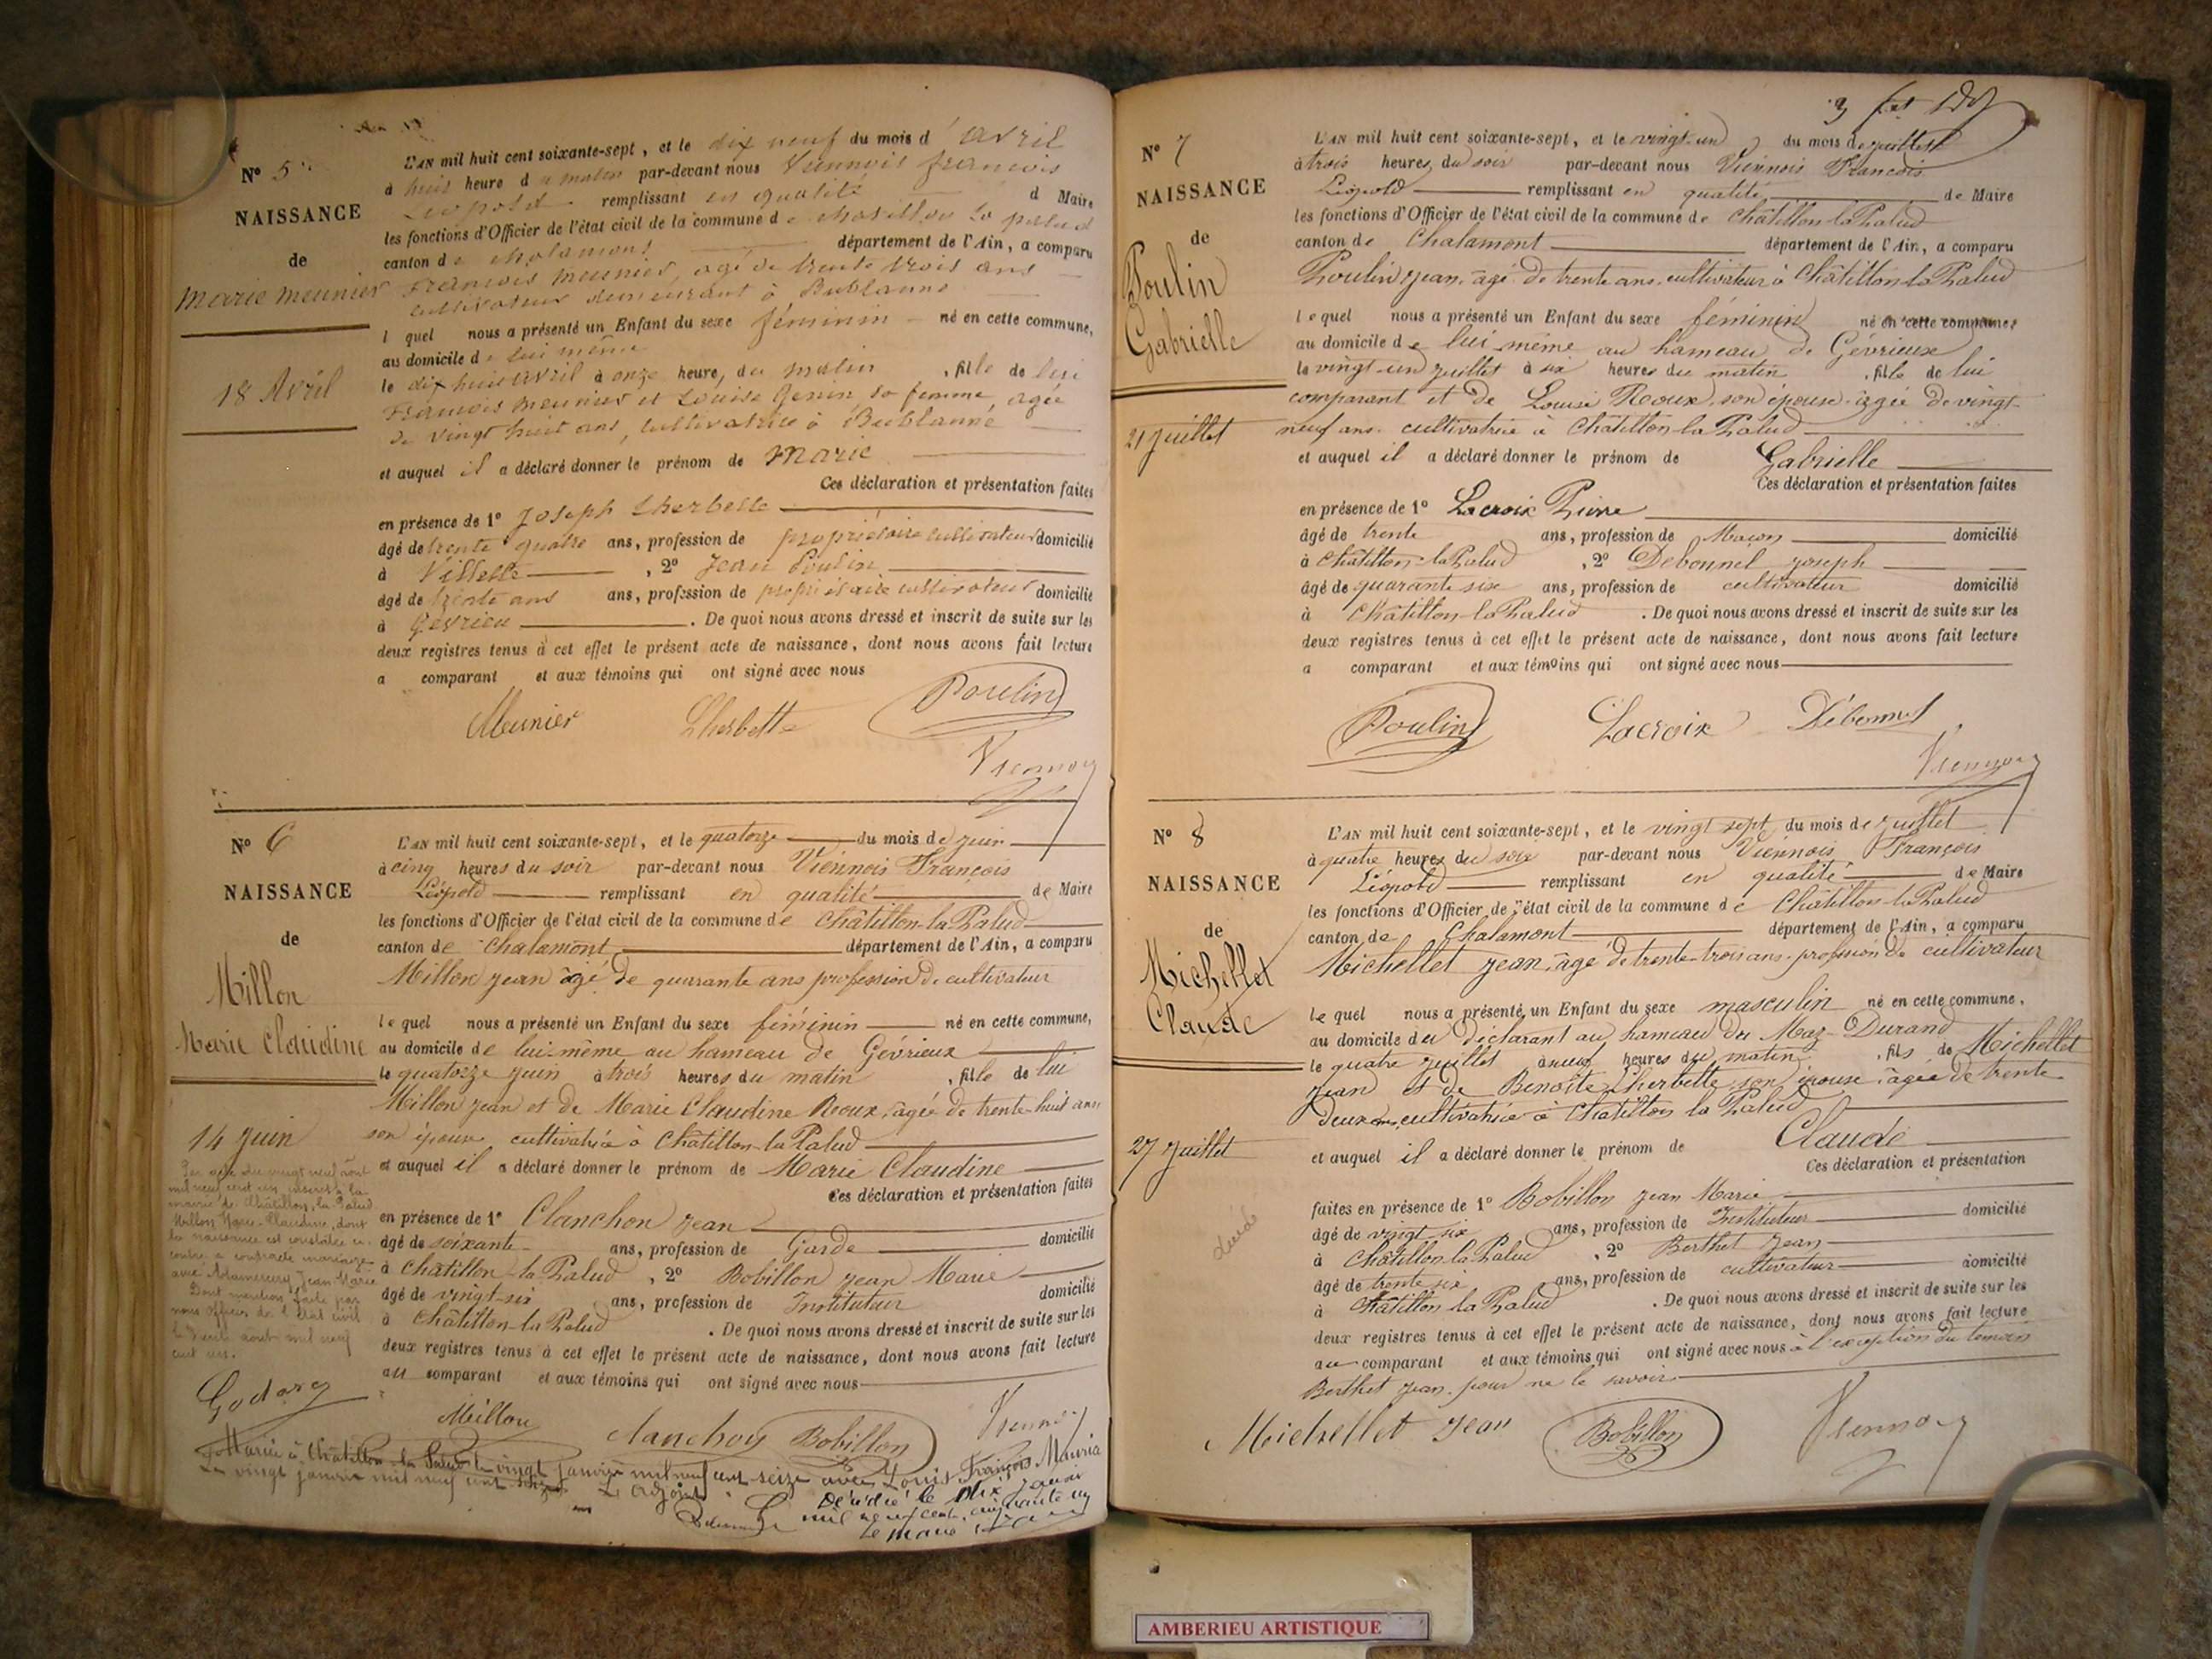 N° 5
NAISSANCE
de
Marie Meunier
18 Avril
L'AN mil huit cent soixante-sept, et le dix neuf du mois d'avril
à huit heure du matin par-devant nous Viennois françois
Leopold remplissant en qualité d Maire
les fonctions d'Officier de l'état civil de la commune de chatillon la palud
canton de chalamont département de l'Ain, a comparu
François Meunier, agé de trente trois ans
cultivateur demeurant à Bublanne
l quel nous a présenté un Enfant du sexe féminin né en cette commune,
au domicile de lui même
le dix huit avril à onze heure, du matin, fille de lui
François Meunier et Louise Genin, sa femme, agée
de vingt huit ans, cultivatrice à Bublanne
et auquel il a déclaré donner le prénom de Marie
Ces déclaration et présentation faites
en présence de 1° Joseph Lherbette
âgé de trente quatre ans, profession de propriétaire cultivateur domicilié
à Villette, 2° Jean Poulin
âgé de trente ans ans, profession de propriétaire cultivateur domicilié
à Gévrieu. De quoi nous avons dressé et inscrit de suite sur les
deux registres tenus à cet effet le présent acte de naissance, dont nous avons fait lecture
a comparant et aux témoins qui ont signé avec nous
Meunier Lherbette Poulin
Viennois
N° 6
NAISSANCE
de
Millon
Marie Claudine
14 Juin
L'AN mil huit cent soixante-sept, et le quatorze du mois de juin
à cinq heures du soir par-devant nous Viennois François
Léopold remplissant en qualité de Maire
les fonctions d'Officier de l'état civil de la commune de Châtillon-la-Palud
canton de Chalamont département de l'Ain, a comparu
Millon Jean âgé de quarante ans profession de cultivateur
lequel nous a présenté un Enfant du sexe féminin né en cette commune,
au domicile de lui-même au hameau de Gévrieux
le quatorze juin à trois heures du matin, fille de lui
Millon Jean et de Marie Claudine Roux, âgée de trente-huit ans
son épouse cultivatrice à Châtillon-la-Palud
et auquel il a déclaré donner le prénom de Marie Claudine
Ces déclaration et présentation faites
en présence de 1° Clanchon Jean
âgé de soixante ans, profession de Garde domicilié
à Châtillon-la-Palud, 2° Bobillon Jean Marie
âgé de vingt-six ans, profession de Instituteur domicilié
à Châtillon-la-Palud. De quoi nous avons dressé et inscrit de suite sur les
deux registres tenus à cet effet le présent acte de naissance, dont nous avons fait lecture
au comparant et aux témoins qui ont signé avec nous
Par acte du vingt neuf août
mil neuf cent un inscrit à la
mairie de Châtillon-la-Palud
Millon Marie-Claudine, dont
la naissance est constatée ci-
contre a contracté mariage
avec Jean Marie
Dont mention faite par
nous officier de l'état civil
le trente août mil neuf
cent un.
Millon Clanchon Bobillon Viennois
Marié à Châtillon-la-Palud le vingt janvier mil neuf cent seize avec Louis François Mauria
Le vingt janvier mil neuf cent seize L'adjoint
Décédé le dix janvier
mil neuf cent cinquante un
Le maire
N° 7
NAISSANCE
de
Poulin
Gabrielle
21 Juillet
L'AN mil huit cent soixante-sept, et le vingt-un du mois de juillet
à trois heures du soir par-devant nous Viennois François
Léopold remplissant en qualité de Maire
les fonctions d'Officier de l'état civil de la commune de Châtillon-la-Palud
canton de Chalamont département de l'Ain, a comparu
Poulin Jean, âgé de trente ans, cultivateur à Châtillon-la-Palud
lequel nous a présenté un Enfant du sexe féminin né en cette commune,
au domicile de lui-même au hameau de Gévrieux
le vingt-un juillet à six heures du matin, fille de lui
comparant et de Louise Roux, son épouse, âgée de vingt-
neuf ans, cultivatrice à Châtillon-la-Palud
et auquel il a déclaré donner le prénom de Gabrielle
Ces déclaration et présentation faites
en présence de 1° Lacroix Pierre
âgé de trente ans, profession de Maçon domicilié
à Châtillon-la-Palud, 2° Debonnel Joseph
âgé de quarante six ans, profession de cultivateur domicilié
à Châtillon-la-Palud. De quoi nous avons dressé et inscrit de suite sur les
deux registres tenus à cet effet le présent acte de naissance, dont nous avons fait lecture
a comparant et aux témoins qui ont signé avec nous
Poulin Lacroix Débonnel
Viennois
N° 8
NAISSANCE
de
Michellet
Claude
27 Juillet
L'AN mil huit cent soixante-sept, et le vingt sept du mois de juillet
à quatre heures du soir par-devant nous Viennois François
Léopold remplissant en qualité de Maire
les fonctions d'Officier de l'état civil de la commune de Châtillon-la-Palud
canton de Chalamont département de l'Ain, a comparu
Michellet Jean, âgé de trente-trois ans, profession de cultivateur
lequel nous a présenté un Enfant du sexe masculin né en cette commune,
au domicile du déclarant au hameau du Maz-Durand
le quatre juillet à neuf heures du matin, fils de Michellet
Jean et de Benoîte Lherbette, son épouse, âgée de trente-
deux ans, cultivatrice à Châtillon la Palud
et auquel il a déclaré donner le prénom de Claude
Ces déclaration et présentation
faites en présence de 1° Bobillon Jean Marie
âgé de vingt six ans, profession de Instituteur domicilié
à Châtillon-la-Palud, 2° Berthet Jean
âgé de trente six ans, profession de cultivateur domicilié
à Châtillon la Palud. De quoi nous avons dressé et inscrit de suite sur les
deux registres tenus à cet effet le présent acte de naissance, dont nous avons fait lecture
au comparant et aux témoins qui ont signé avec nous à l'exception du témoin
Berthet Jean, pour ne le savoir
Michellet Jean Bobillon Viennois
AMBERIEU ARTISTIQUE